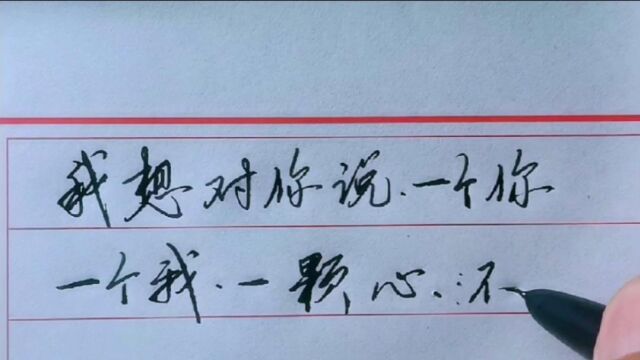 我想对你说.一个你
一个我.一颗心.